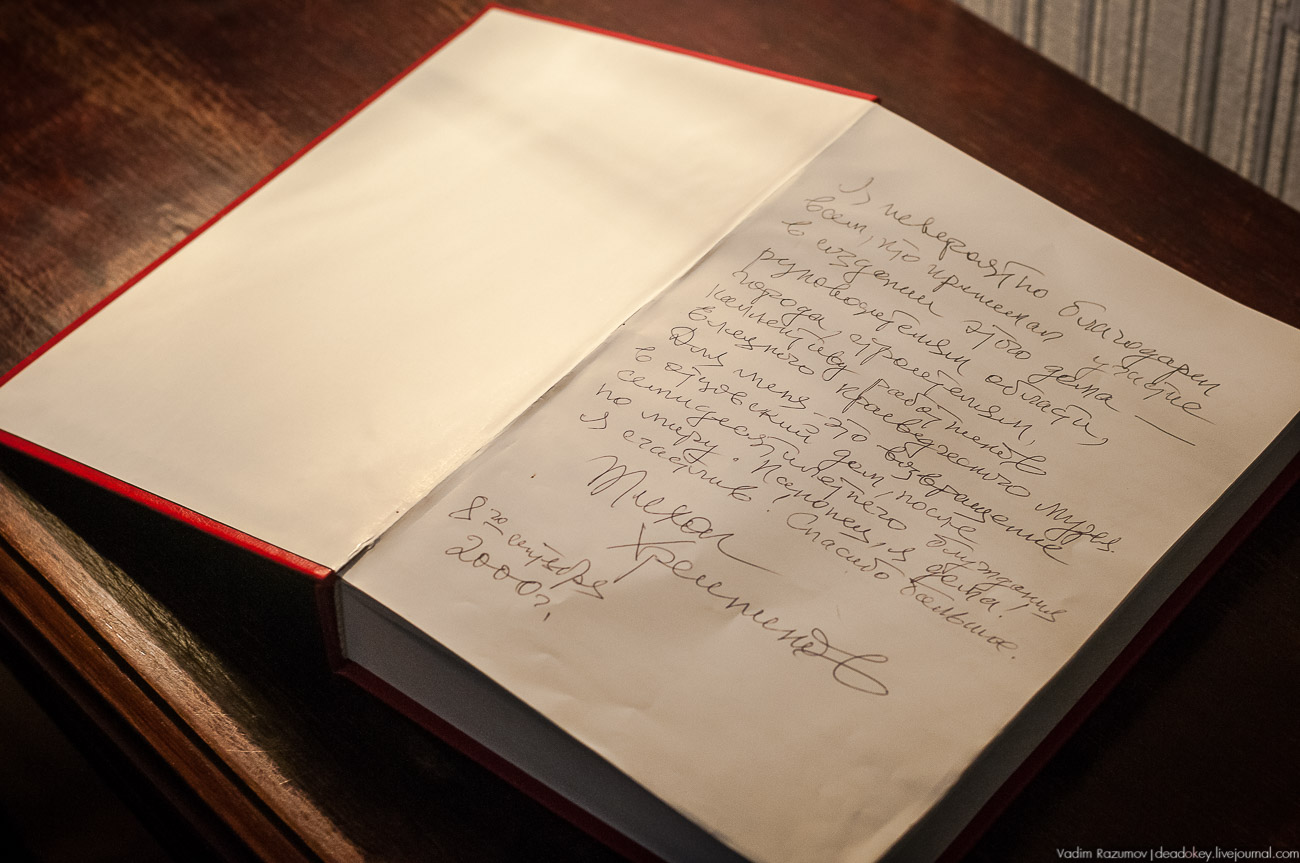 Я невероятно благодарен
всем, кто принимал участие
в создании этого дома —
руководителям области,
города, строителям,
коллективу работников
Елецкого краеведческого музея.
Для меня - это возвращение
в отцовский дом, после
семидесятилетнего блуждания
по миру. Наконец, я дома!
Я счастлив. Спасибо большое.
Тихон
Хренников
8го сентября
2000г.
Vadim Razumov | deadokey.livejournal.com